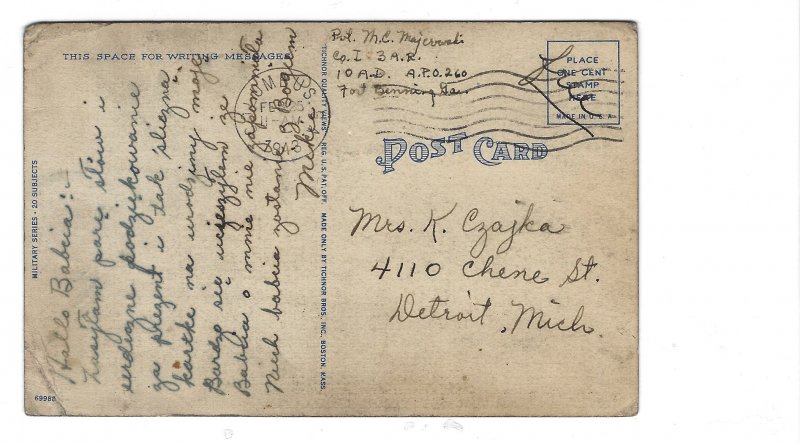 THIS SPACE FOR WRITING MESSAGES
Hallo Babcia:-
parę słów i
serdiczne podziękowanie
za prezent i tak sliczną
kartke na urodziny moje.
Bardzo się ucieszyłem że
Babcia o mnie nie zapomniała
Niech babcia zostanie z Bogiem
Pvt. M.C. Majewski
Co. I 3 A.R.
10 A.D. A.P.O. 260
Fort Benning Ga.
PLACE
ONE CENT
STAMP
HERE
MADE IN U.S.A.
POST CARD
Mrs. K. Czajka
4110 Chene St.
Detroit, Mich.
MILITARY SERIES - 20 SUBJECTS
TICHNOR QUALITY VIEWS - REG. U.S. PAT. OFF. MADE ONLY BY TICHNOR BROS., INC., BOSTON, MASS.
1943